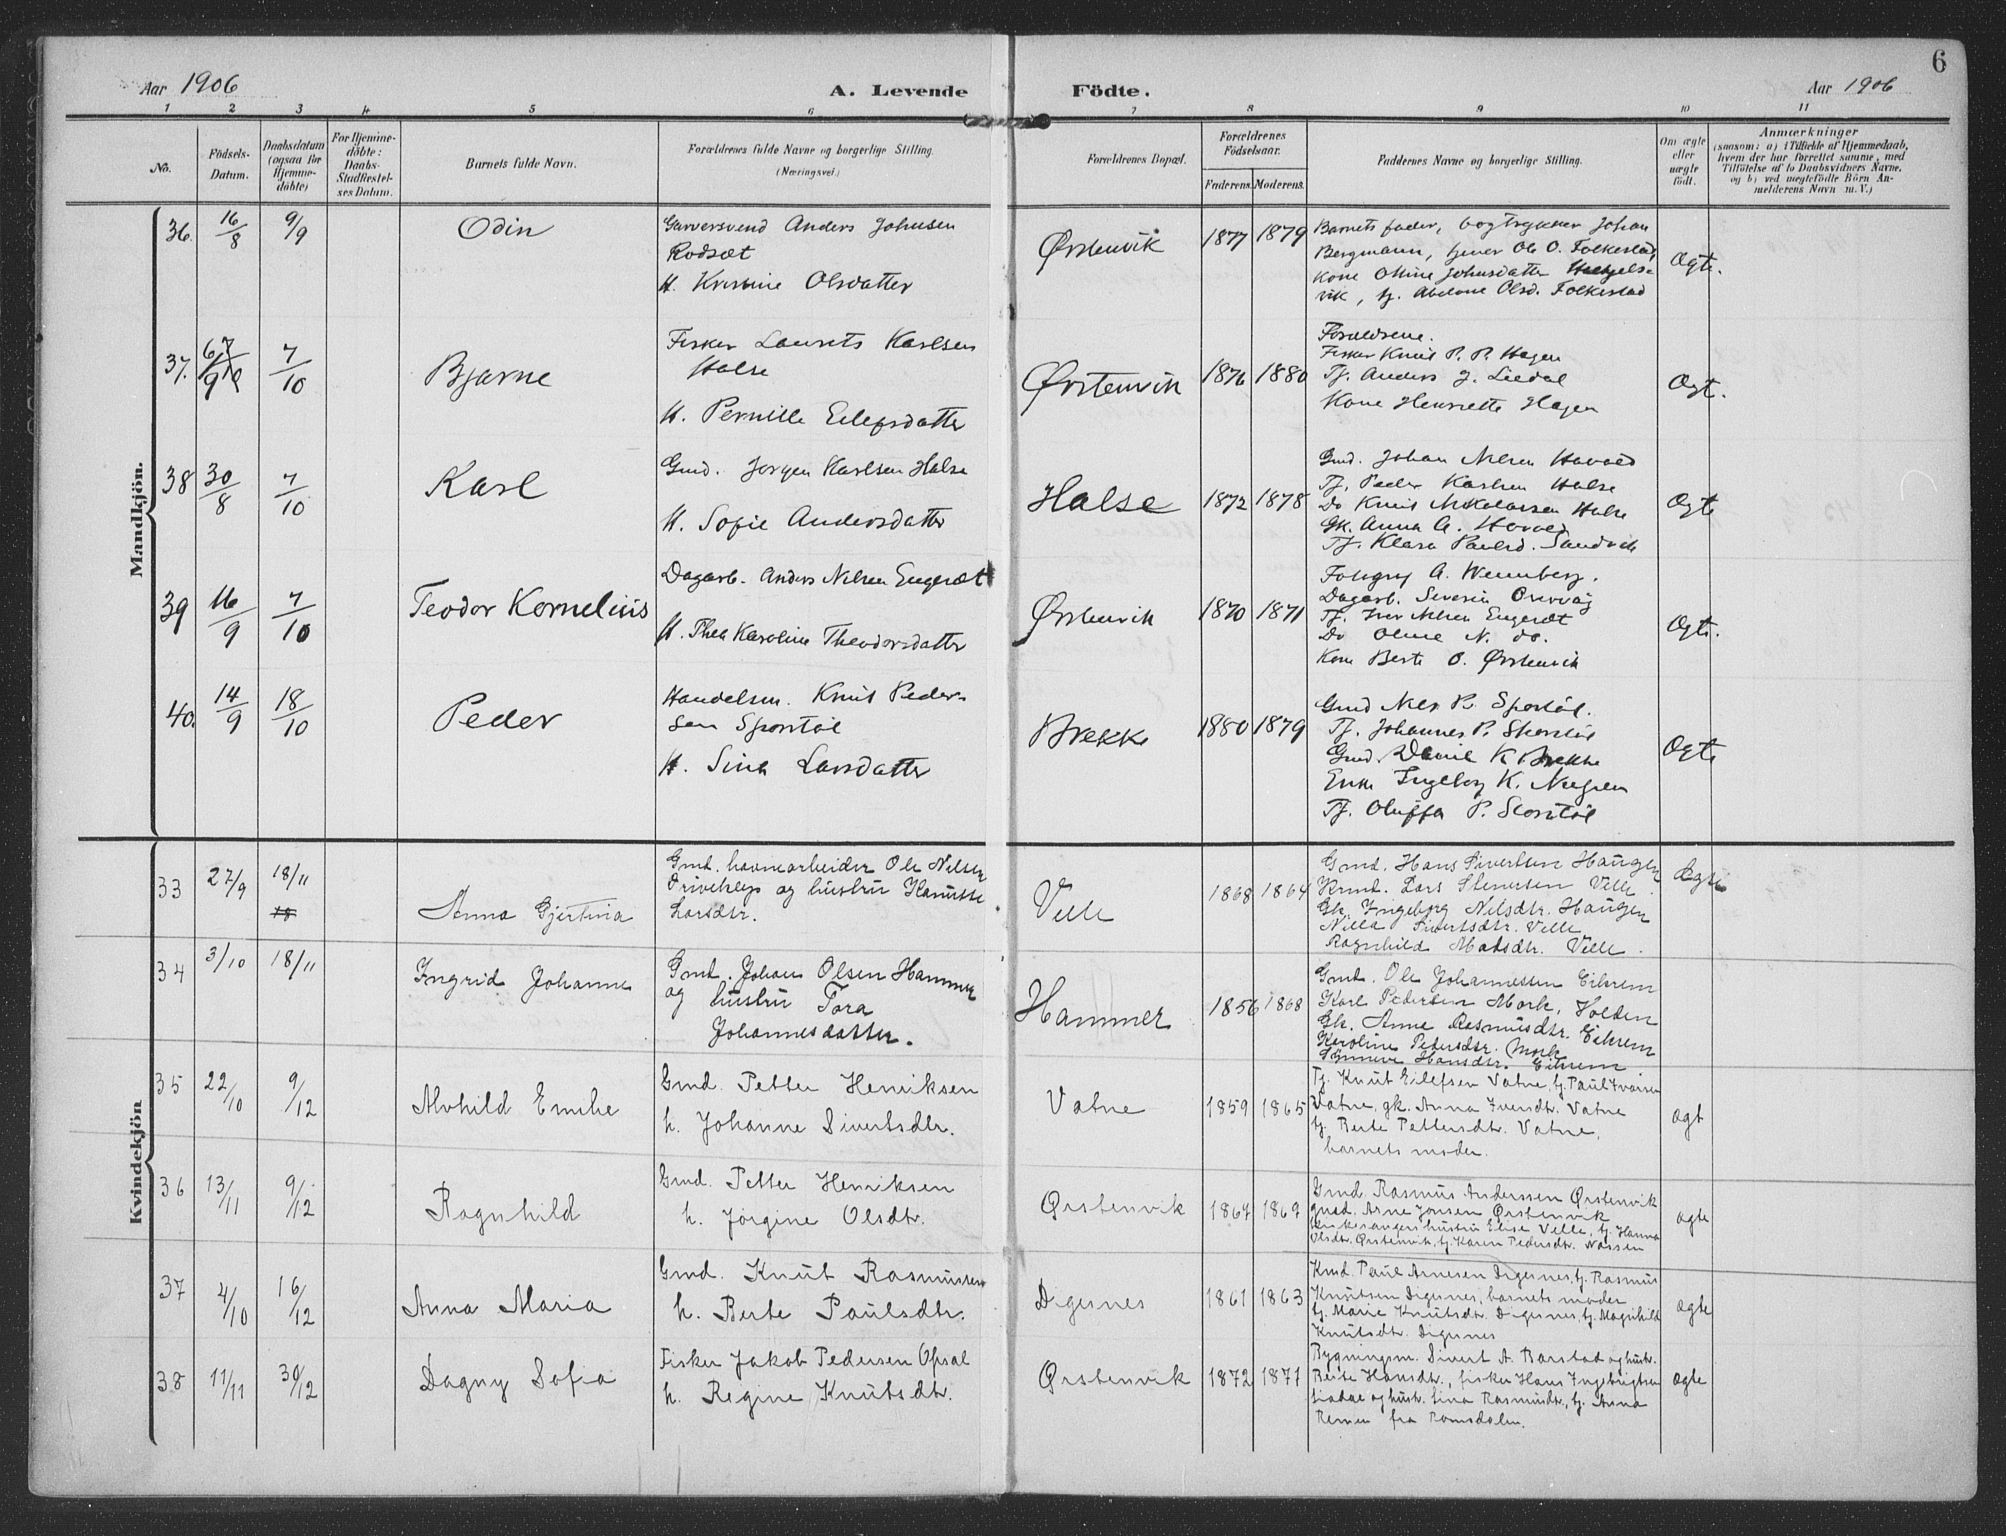 6
Aar 1906
A. Levende Födte.
Aar 1906
1 2 3 4 5 6 7 8 9 10 11
No.
Födsels-Datum.
Daabsdatum (ogsaa för Hjemme-döbte)
For Hjemme-döbte: Daabs-Stadfæstel-ses Datum.
Barnets fulde Navn.
Forældrenes fulde Navne og borgerlige Stilling. (Næringsvei.)
Forældrenes Bopæl.
Forældrenes Födselsaar.
Faderens. Moderens.
Faddernes Navne og borgerlige Stilling.
Om ægte eller uægte födt.
Anmærkninger
(saasom: a) i Tilfælde af Hjemmedaab, hvem der har forrettet samme, med Tilföielse af to Daabsvidners Navne, og b) ved uægtefödte Börn An-melderens Navn m. V.)
Mandkjön.
36. 16/8 9/9 Odin
Garversvend Anders Johnsen
Rodsæt
H. Kristine Olsdatter
Ørstenvik 1877 1879
Barnets fader, bogtrykker Johan
Bergmann, tjener Ole O. Folkestad,
Kone Oline Johnsdatter
vik, tj. Abelone Olsd. Folkestad
Ægte.
37. 7/10 Bjarne
Fisker Laurits Karlsen
Halse
H. Pernille Eilefsdatter
Ørstenvik 1876 1880
Forældrene.
Fisker Knut P. P. Hagen
Tj. Anders J. Liedal
Kone Henriette Hagen
Ægt.
38 30/8 7/10 Karl
Gmd. Jørgen Karlsen Halse
H. Sofie Andersdatter
Halse 1872 1878
Gmd. Johan Nilsen Hovold
Tj. Peder Karlsen Halse
Do Knut Nikolaisen Halse
Gk. Anna A. Hovold
Tj. Klara Paulsd. Sandvik
Ægte
39 16/9 7/10 Teodor Kornelius
Dagarb. Anders Nilsen Engeset
H. Thea Karoline Theodorsdatter
Ørstenvik 1870 1871
Fotogr. A. Wennberg.
Dagarb. Severin Osvvåg
Tj. Iver Nilsen Engeset
Do Oline N. do.
Kone Berte O. Ørstenvik
Ægte.
40. 14/9 18/10 Peder
Handelsm. Knut Peder-
sen Sporstøl
H. Sina Larsdatter
Brekke 1880 1879
Gmd Nils P. Sporstøl.
Tj. Johannes P. Skorstøl
Gmd. Daniel K. Brekke
Enke Ingeborg K. Nregren
Tj. Oluffa P. Skorstøl
Ægte
Kvindekjön
33 27/9 18/11
Anna Gjertina
Gmd. havnearbeider Ole Nilsen
Driveklep og hustru Hanutte
Larsdtr.
Velle 1868 1864
Gmd. Hans Sivertsen Haugen
Kmd. Lars Stenersen Velle
Gk. Ingeborg Nilsdtr. Haugen
Nilla Sivertsdtr. Velle
Ragnhild Matsdtr. Velle.
Ægte
34 3/10 18/11
Ingrid Johanne
Gmd. Johan Olsen Hammer
og hustru Tora
Johannesdatter.
Hammer 1856 1868
Gmd. Ole Johannessen Eikrem
Karl Pedersen Mork, Volden
Gk. Anne Rasmusdtr. Eikrem
Karoline Pedersdtr. Mork
Synneve Hansdtr. Eikrem
35 22/10 9/12
Alvhild Emilie
Gmd. Petter Henriksen
h. Johanne Sivertsdtr.
Vatne 1859 1865
Tj. Knut Eilefsen Vatne, tj. Paul Ivarsen
Vatne, gk. Anna Iversdtr. Vatne
tj. Berte Pettersdtr. Vatne,
barnets moder.
ægt
36 13/11 9/12
Ragnhild
Gmd. Petter Henriksen
h. Jørgine Olsdtr.
Ørstenvik 1864 1869
Gmd. Rasmus Anderssen Ørstenvik
gmd. Arne Jonsen Ørstenvik
kirkesangerhustru Elise Velle, tj. Hanna
Olsdtr. Ørstenvik, tj. Karen Pedersdtr. Nossen
ægte
37 4/10 16/12
Anna Maria
Gmd. Knut Rasmussen
h. Berte Paulsdtr.
Digernes 1861 1863
Kmd. Paul Arnesen Digernes, tj. Rasmus
Knutsen Digernes, barnets moder
tj. Marie Knutsdtr. Digernes, tj. Magnhild
Knutsdtr. Digernes
ægte
38 11/11 30/12
Dagny Sofia
Fisker Jakob Pedersen Opsal
h. Regine Knutsdtr.
Ørstenvik 1872 1871
Bygningsm. Sivert A. Barstad og hustr.
Berte Hansdtr., fisker Hans Ingebrigtsen
Liadal og hustr. Lina Rasmusdtr., tj. Anna
Remen fra Romsdalen.
ægte